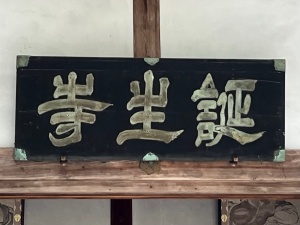 誕生寺